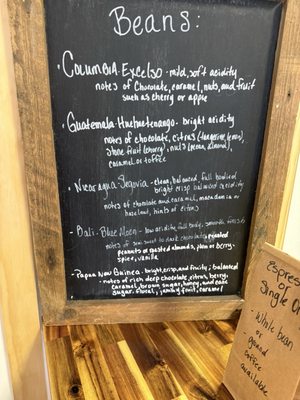 Beans:
Columbia-Excelso - mild, soft acidity
notes of chocolate, caramel, nuts, and fruit
such as cherry or apple
Guatemala-Huehuetenango - bright acidity
notes of chocolate, citrus (tangerine, lemon)
stone fruit (cherry), nuts (pecan, almond),
caramel or toffee
- Nicaragua-Segovia - clean, balanced, full bodied
bright crisp balanced acidity
notes of chocolate and caramel, macadamia or
hazelnut, hints of citrus
- Bali-Blue Moon - low acidity, full body, smooth finish
notes of semi sweet to dark chocolate,
peanuts or roasted almonds, plum or berry,
spice, vanilla
- Papua New Guinea - bright, crisp, and fruity; balanced
- notes of rich deep chocolate, citrus, berry
caramel, brown sugar, honey, and cane
sugar. floral, fruit, caramel
Espres
or
Single Or
- Whole bean
or ground
coffee
available